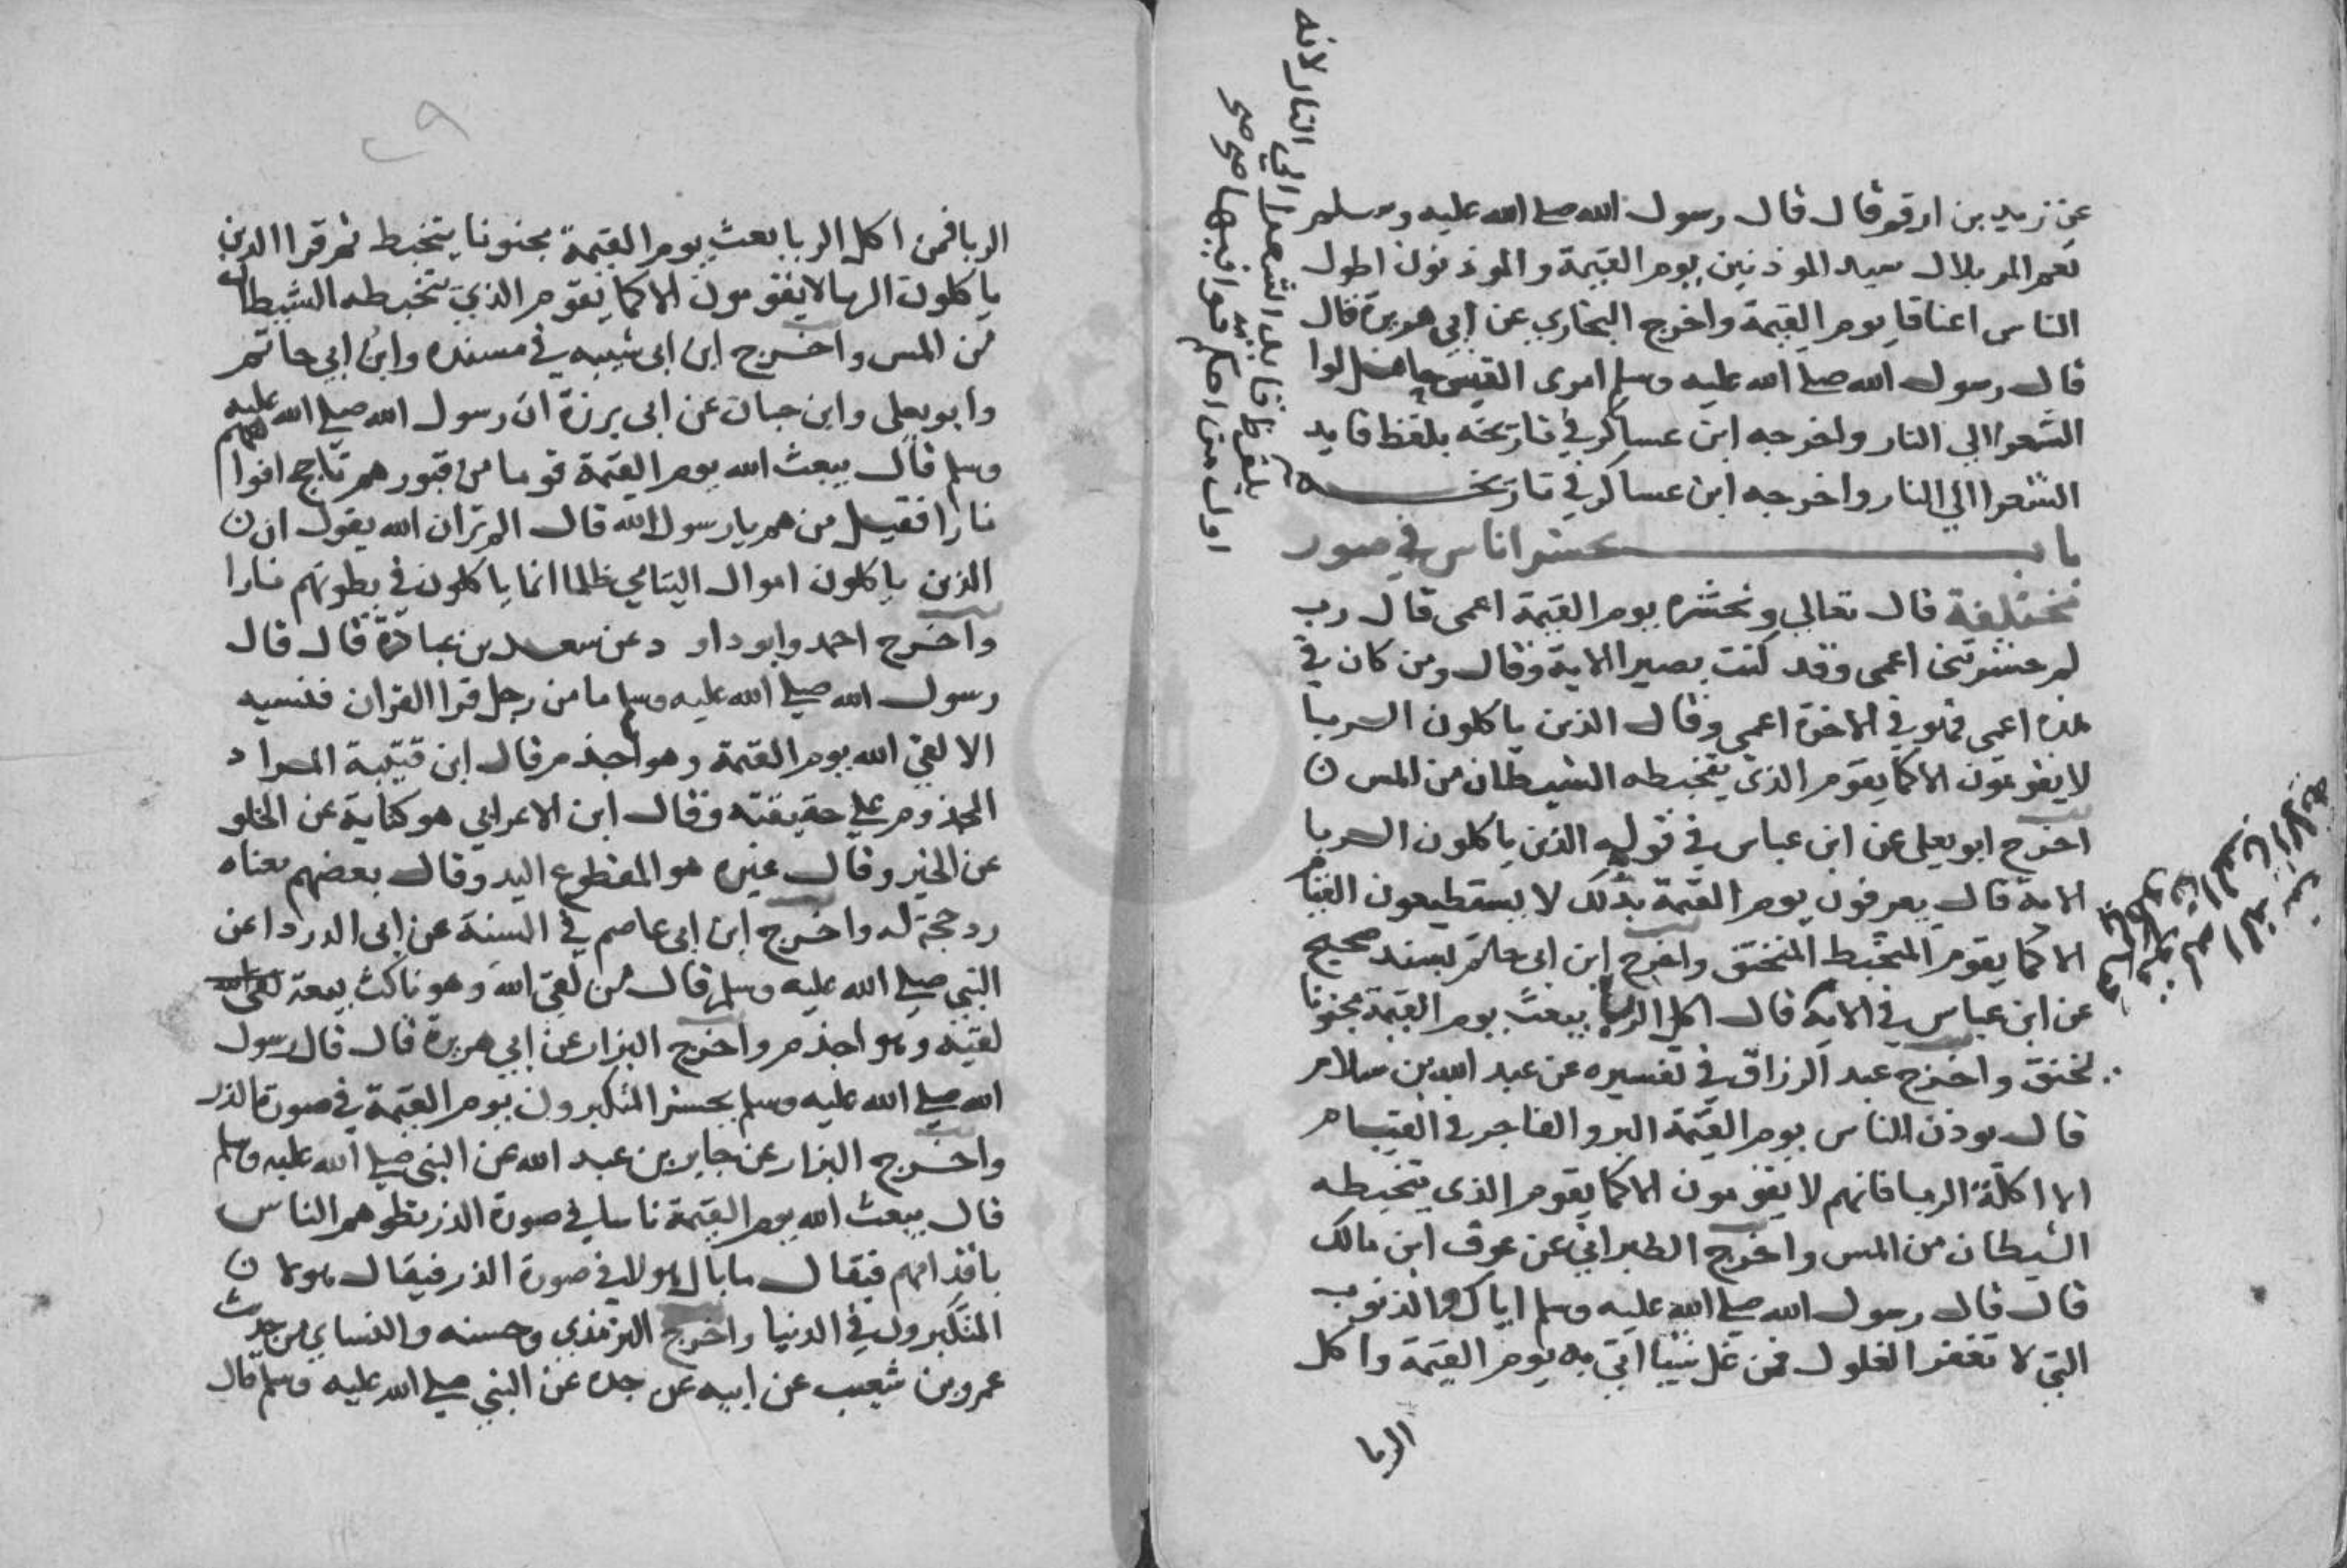 عن زيد بن ارقم قال قال رسول الله صلى الله عليه وسلم
نعم المر بلال سيد الموذنين يوم القيمة والموذنون اطول
الناس اعناقا يوم القيمة واخرج البخاري عن ابي هريرة قال
قال رسول الله صلى الله عليه وسلم امرى القيس لوا
الشعرا الي النار واخرجه ابن عساكر في تاريخه بلفظ قايد
الشعرا الي النار واخرجه ابن عساكر في تاريخه
بلفظ قايد الشعرا الي النار لانه
اول من احكم قوافيها صح صح
باب حشر الناس في صور
مختلفة قال تعالي ونحشره يوم القيمة اعمى قال رب
لم حشرتني اعمى وقد كنت بصيرا الاية وقال ومن كان في
هذه اعمي فهو في الاخرة اعمي وقال الذين ياكلون الربا
لا يقومون الا كما يقوم الذي يتخبطه الشيطان من المس
اخرج ابو يعلي عن ابن عباس في قوله الذين ياكلون الربا
الاية قال يعرفون يوم القيمة بذلك لا يستطيعون القيام
الا كما يقوم المتخبط المنخنق واخرج ابن ابي حاتم بسند صحيح
عن ابن عباس في الاية قال اكل الربا يبعث يوم القيمة مجنونا
يخنق واخرج عبد الرزاق في تفسيره عن عبد الله بن سلام
قال يوذن الناس يوم القيمة البر والفاجر في القيام
الا اكلة الربا فانهم لا يقومون الا كما يقوم الذي يتخبطه
الشيطان من المس واخرج الطبراني عن عوف ابن مالك
قال قال رسول الله صلى الله عليه وسلم اياك والذنوب
التي لا تغفر الغلول فمن غل شيا اتي به يوم القيمة واكل
الربا
٢٩
الربا فمن اكل الربا بعث يوم القيمة مجنونا يتخبط ثم قرا الذين
ياكلون الربا لا يقومون الا كما يقوم الذي يتخبطه الشيطان
من المس واخرج ابن ابى شيبه في مسنده وابن ابي حاتم
وابو يعلى وابن حبان عن ابى برزة ان رسول الله صلى الله عليه
وسلم قال يبعث الله يوم القيمة قوما من قبورهم تاجج افواههم
نارا فقيل من هم يا رسول الله قال الم تر ان الله يقول ان
الذين ياكلون اموال اليتامي ظلما انما ياكلون في بطونهم نارا
واخرج احمد وابو داود عن سعد بن عبادة قال قال
رسول الله صلى الله عليه وسلم ما من رجل قرا القران فنسيه
الا لقي الله يوم القيمة وهو اجذم قال ابن قتيبة المراد
المجذوم علي حقيقته وقال ابن الاعرابي هو كناية عن الخلو
عن الخير وقال غيره هو المقطوع اليد وقال بعضهم معناه
رد حجة له واخرج ابن ابى عاصم في السنة عن ابى الدردا عن
النبي صلى الله عليه وسلم قال من لقي الله وهو ناكث بيعة لقي الله
لقيه وهو اجذم واخرج البزار عن ابي هريرة قال قال رسول
الله صلى الله عليه وسلم يحشر المتكبرون يوم القيمة في صورة الذر
واخرج البزار عن جابر بن عبد الله عن النبي صلى الله عليه وسلم
قال يبعث الله يوم القيمة ناسا في صورة الذر يطوهم الناس
باقدامهم فيقال ما بال هولا في صورة الذر فيقال هولا
المتكبرون في الدنيا واخرج الترمذي وحسنه والنساي من حديث
عمرو بن شعيب عن ابيه عن جده عن النبي صلى الله عليه وسلم قال